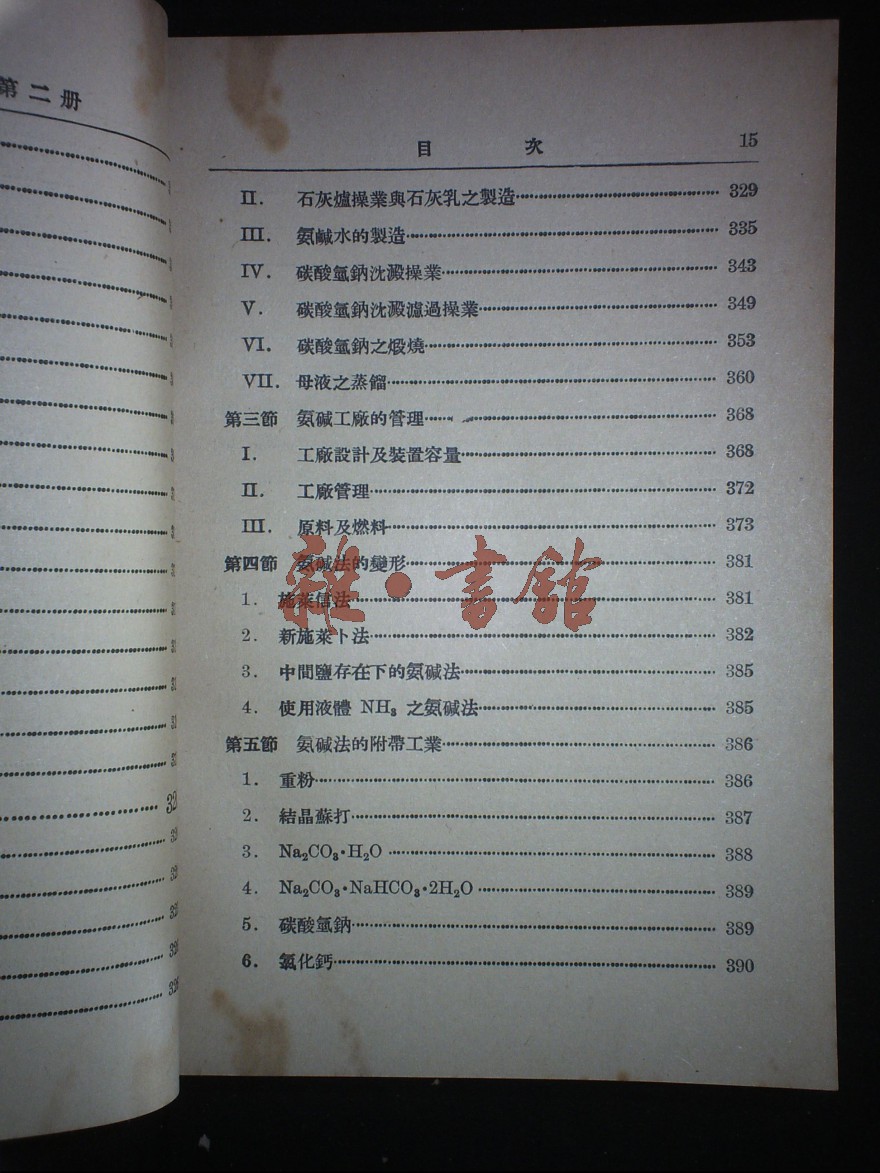 第二册
32
目 次 15
II. 石灰爐操業與石灰乳之製造 329
III. 氨鹹水的製造 335
IV. 碳酸氫鈉沈澱操業 343
V. 碳酸氫鈉沈澱濾過操業 349
VI. 碳酸氫鈉之煅燒 353
VII. 母液之蒸餾 360
第三節 氨碱工廠的管理 368
I. 工廠設計及裝置容量 368
II. 工廠管理 372
III. 原料及燃料 373
第四節 氨碱法的變形 381
1. 施萊信法 381
2. 新施萊卜法 382
3. 中間鹽存在下的氨碱法 385
4. 使用液體 NH₃ 之氨碱法 385
第五節 氨碱法的附帶工業 386
1. 重粉 386
2. 結晶蘇打 387
3. Na₂CO₃·H₂O 388
4. Na₂CO₃·NaHCO₃·2H₂O 389
5. 碳酸氫鈉 389
6. 氯化鈣 390
雜·書館